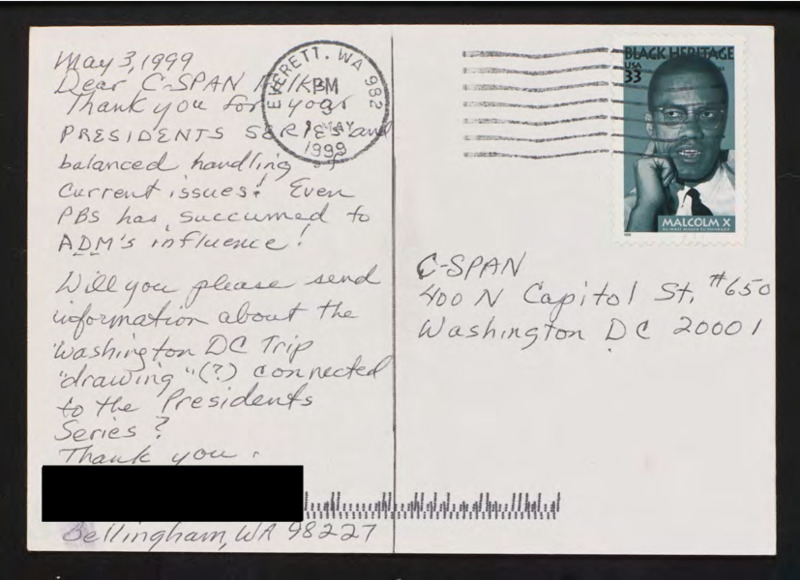 May 3, 1999
Dear C-SPAN
Thank you for your
PRESIDENTS SERIES and
balanced handling of
current issues! Even
PBS has succumed to
ADM's influence!
Will you please send
information about the
Washington DC Trip
"drawing" (?) connected
to the Presidents
Series?
Thank you.
Bellingham, WA 98227
EVERETT, WA 982
PM
3
MAY
1999
BLACK HERITAGE
USA
33
MALCOLM X
C-SPAN
400 N Capitol St. #650
Washington DC 20001